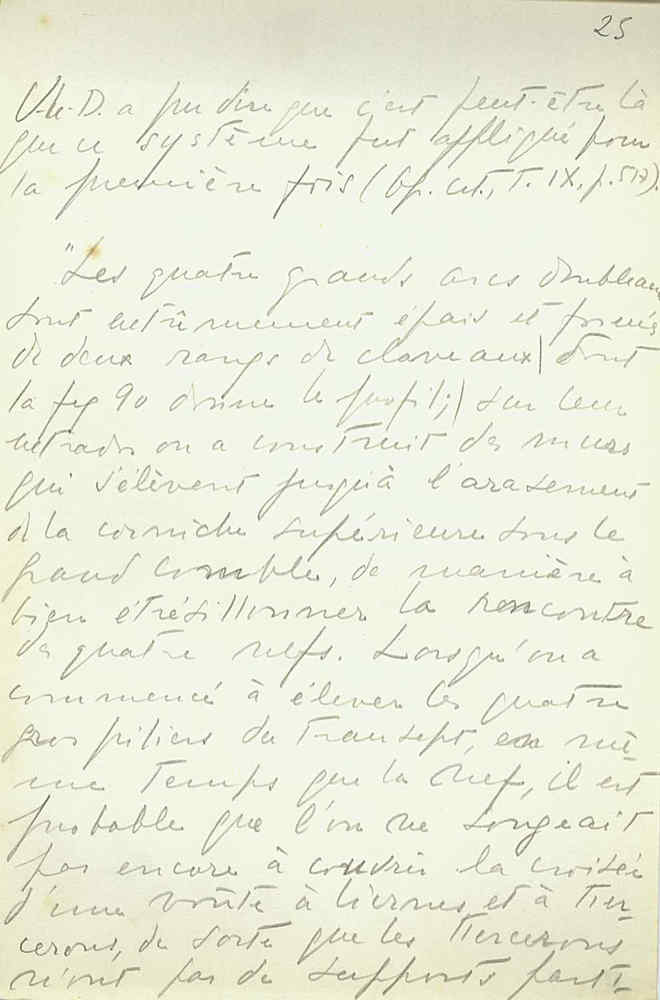 25
V.-l.-D. a pu dire que c'est peut-être là
que ce système fut appliqué pour
la première fois (Op. cit., T. IX, p. 517).
"Les quatre grands arcs doubleaux
sont extrêmement épais et formés
de deux rangs de claveaux | dont
la fig 90 donne le profil; | sur leur
extrados on a construit des murs
qui s'élèvent jusqu'à l'arasement
de la corniche supérieure sous le
grand comble, de manière à
bien étrésillonner la rencontre
des quatre nefs. Lorsqu'on a
commencé à élever les quatre
gros piliers du transept, en mê-
me temps que la nef, il est
probable que l'on ne songeait
pas encore à couvrir la croisée
d'une voûte à liernes et à tier-
cerons, de sorte que les tiercerons
n'ont pas de supports parti-